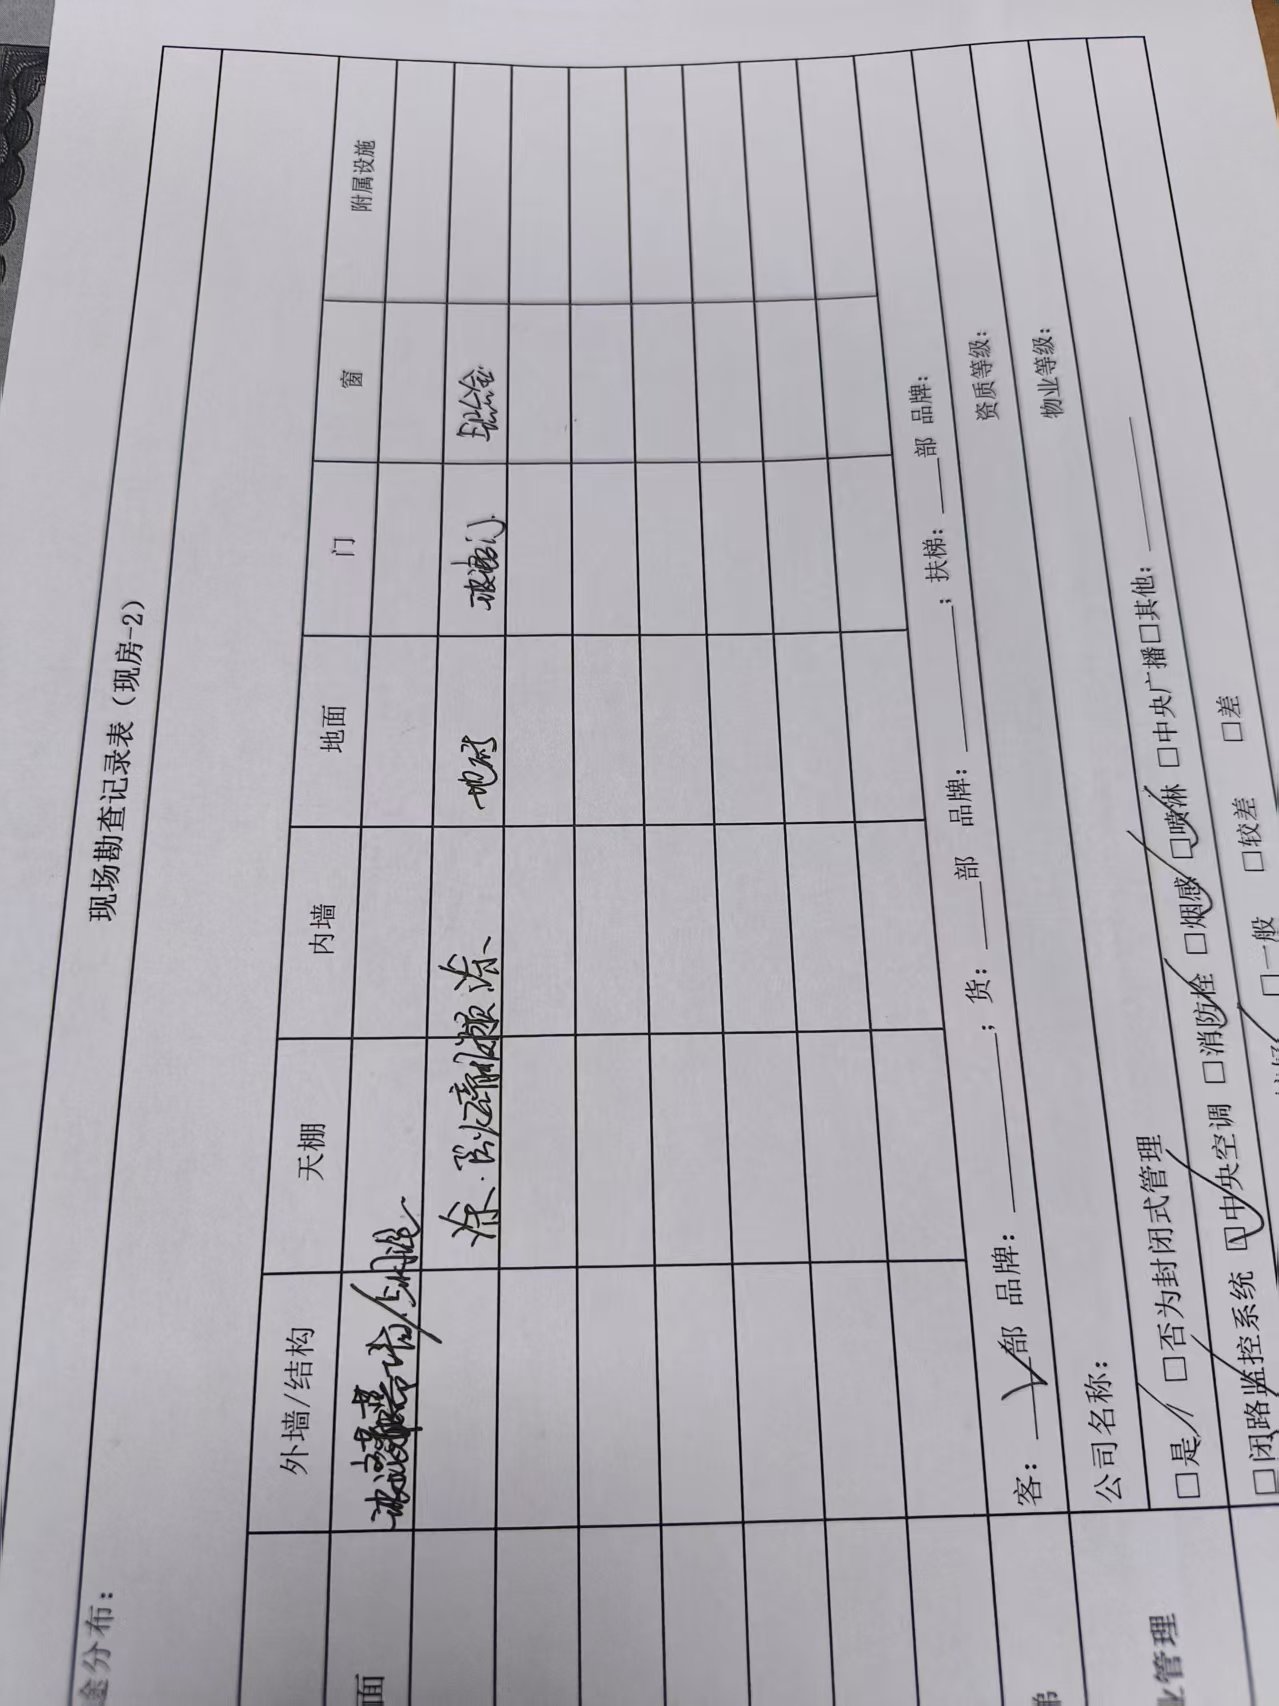 现场勘查记录表（现房-2）
途分布：
外墙/结构 天棚 内墙 地面 门 窗 附属设施
面
涂、 地砖 玻璃门 铝合金
客： 部 品牌： ；货： 部 品牌： ；扶梯： 部 品牌：
公司名称： 资质等级：
业管理 □是 □否为封闭式管理 物业等级：
□闭路监控系统 □中央空调 □消防栓 □烟感 □喷淋 □中央广播□其他：
□一般 □较差 □差